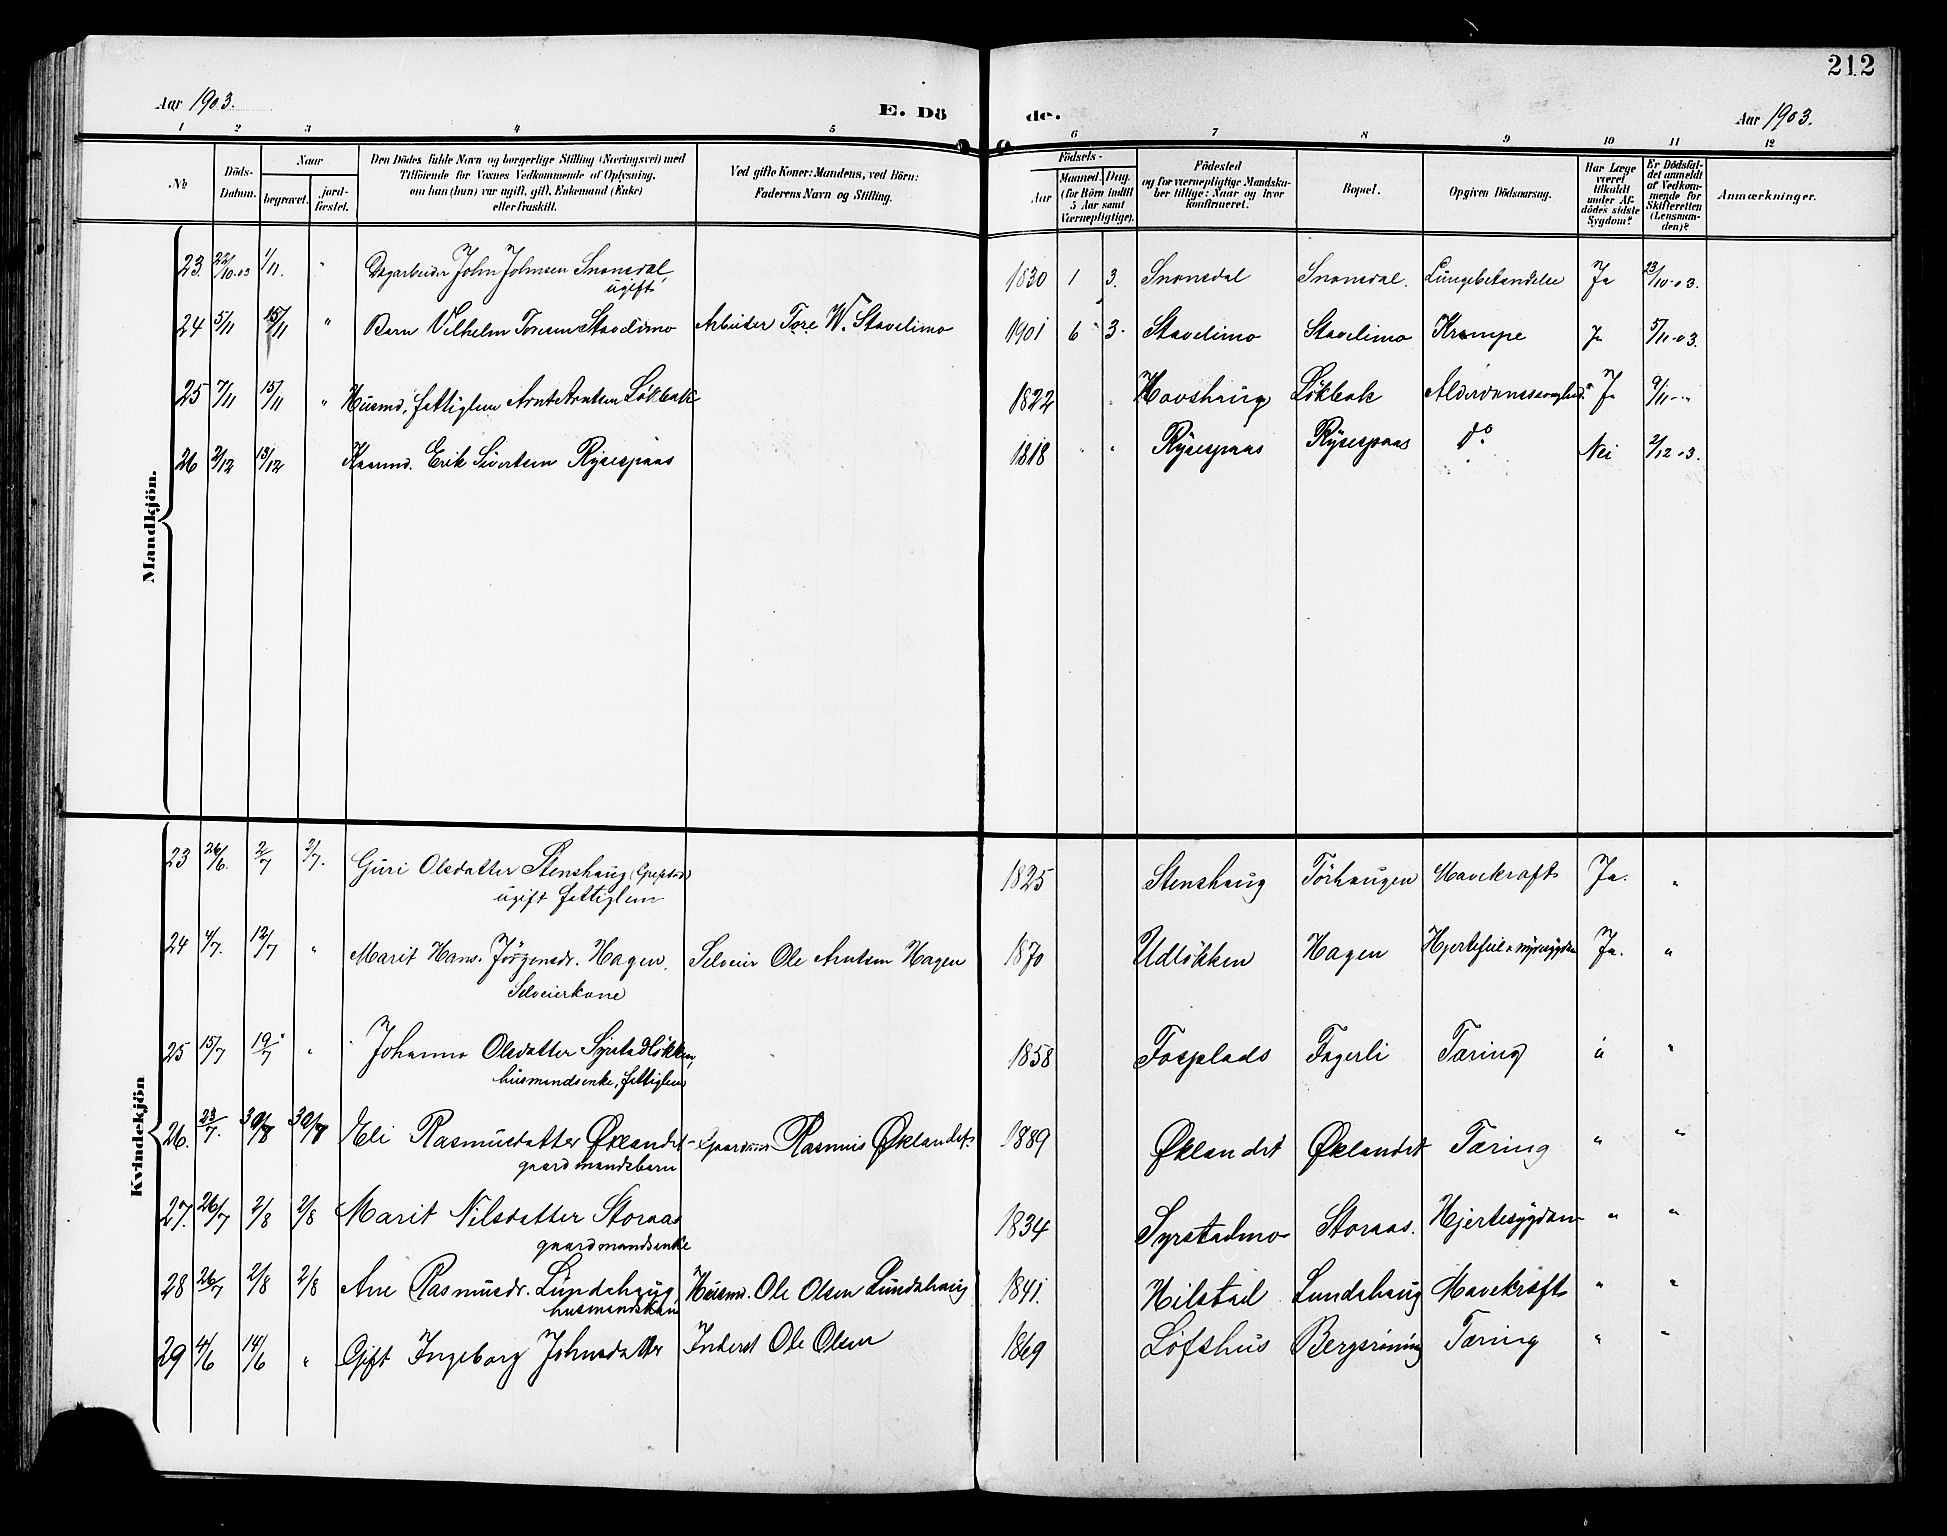 212
Aar 1903. E. Dö de. Aar 1903.
1 2 3 4 5 6 7 8 9 10 11 12
No Döds-Datum. Naar begravet. jord-fæstet. Den Dödes fulde Navn og borgerlige Stilling (Næringsvei) med Tilföiende for Voxnes Vedkommende af Oplysning, om han (hun) var ugift, gift, Enkemand (Enke) eller fraskilt. Ved gifte Koner: Mandens, ved Börn: Faderens Navn og Stilling. Födsels- Aar Maaned. Dag. (for Börn indtil 5 Aar samt Værnepligtige). Födested og for værnepligtige Mandskaber tillige: Naar og hvor konfirmeret. Bopæl. Opgiven Dödsaarsag. Har Læge været tilkaldt under Afdödes sidste Sygdom? Er Dödsfaldet anmeldt af Vedkommende for Skifteretten (Lensmanden)? Anmærkninger.
Mandkjön.
23. 22/10-03 1/11. " Dagarbeider John Johnsen Snoensdal, ugift 1830 1 3. Snoensdal Snoensdal. Lungebetændelse Ja 23/10-03.
24 5/11 15/11 " Barn Vilhelm Toresen Stavelimo Arbeider Tore W. Stavelimo 1901 6 3. Stavelimo Stavelimo Krampe Ja 5/11-03.
25 7/11 15/11 " Husmd, fattiglem Arnt Arntsen Løkbak 1822 " Havshaug Løkbak Alderdomssvaghed Ja 9/11-"
26 2/12 13/12 Kaarmd. Erik Sivertsen Rysespaas 1818 " " Rysespaas Rysespaas do. Nei 2/12 03.
Kvindekjön
23 26/6. 2/7 2/7. Guri Olsdatter Stenshaug ugift fattiglem 1825 Stenshaug Törhaugen Mavekræft Ja. "
24 4/7. 12/7 " Marit Hans. Jörgensdr. Hagen, Selveierkone Selveier Ole Arntsen Hagen 1870 Udløkken Hagen Hjertefeil Ja. "
25 15/7 19/7 " Johanna Olsdatter Syrstadløkken, husmandsenke, fattiglem 1858 Fosplads Fagerli Tæring " "
26. 23/7. 30/8 Eli Rasmusdatter Øklandet gaardmandsbarn Gaardmd Rasmus Øklandet 1889 Øklandet Øklandet Tæring " "
27. 26/7 2/8 2/8 Marit Nilsdatter Storaas gaardmandsenke 1834 Syrstadmo Storaas. Hjertesygdom " "
28 26/7 2/8 2/8 Ane Rasmusdr. Lundahaug husmandskone Husmd. Ole Olsen Lundahaug 1841. Hilstad Lundahaug Mavekræft " "
29 4/6 14/6 " Gift Ingeborg Johnsdatter Inderst Ole Olsen 1869 Løfshus Bergsröning Tæring " "